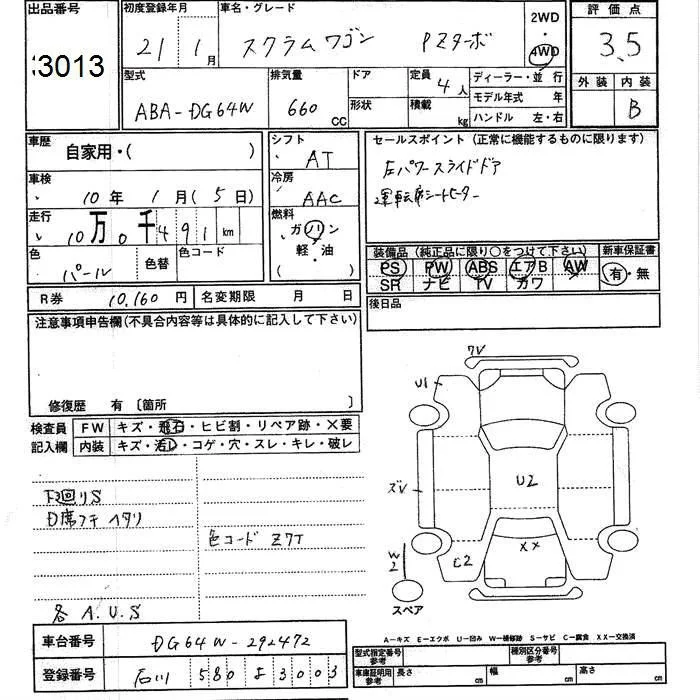 出品番号
3013
初度登録年月
21年 1月
車名・グレード
スクラムワゴン PZターボ
2WD
・
4WD
評価点
3.5
外装 内装
B
型式
ABA-DG64W
排気量
660 CC
ドア
形状
定員
4人
積載 kg
ディーラー・並行
モデル年式 年
ハンドル 左・右
車歴
自家用・( )
車検
10年 1月(5日)
走行
10万0千491km
色
パール
色替
色コード
シフト
AT
冷房
AAC
燃料
ガソリン
軽・油
( )
セールスポイント(正常に機能するものに限ります)
左パワースライドドア
運転席シートヒーター
装備品(純正品に限り○をつけて下さい)
新車保証書
PS PW ABS エアB AW
SR ナビ TV カワ
有・無
R券 10,160円 名変期限 月 日
後日品
注意事項申告欄(不具合内容等は具体的に記入して下さい)
修復歴 有〔箇所 〕
検査員
記入欄
FW キズ・飛石・ヒビ割・リペア跡・×要
内装 キズ・汚レ・コゲ・穴・スレ・キレ・破レ
下廻りS
D席フチ ヘタリ
色コード Z7T
各 A.U.S
7V
U1
U2
ズV
W2
C2
XX
スペア
A-キズ E-エクボ U-凹み W-補修跡 S-サビ C-腐食 XX-交換済
車台番号 DG64W-292472
登録番号 石川 580 よ 3003
型式指定番号
参考
種別区分番号
参考
車庫証明用
参考
長さ cm 幅 cm 高さ cm